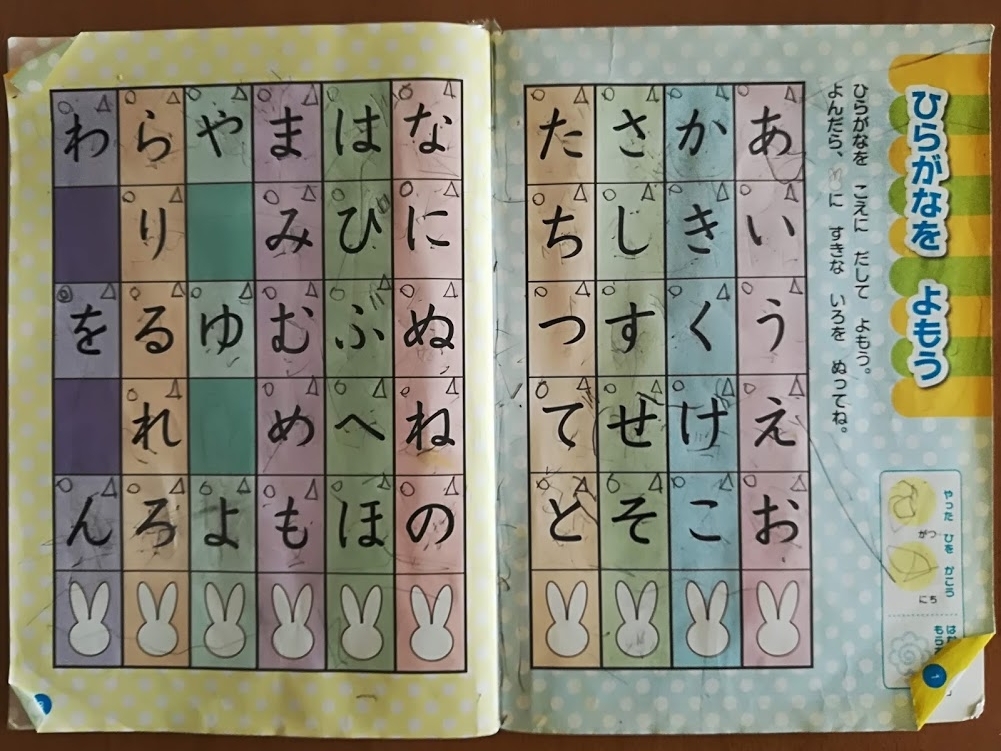 ひらがなを よもう
ひらがなを こえに だして よもう。
よんだら、 に すきな いろを ぬってね。
やった ひを かこう
がつ
にち
1
あ
い
う
え
お
か
き
く
け
こ
さ
し
す
せ
そ
た
ち
つ
て
と
な
に
ぬ
ね
の
は
ひ
ふ
へ
ほ
ま
み
む
め
も
や
ゆ
よ
ら
り
る
れ
ろ
わ
を
ん